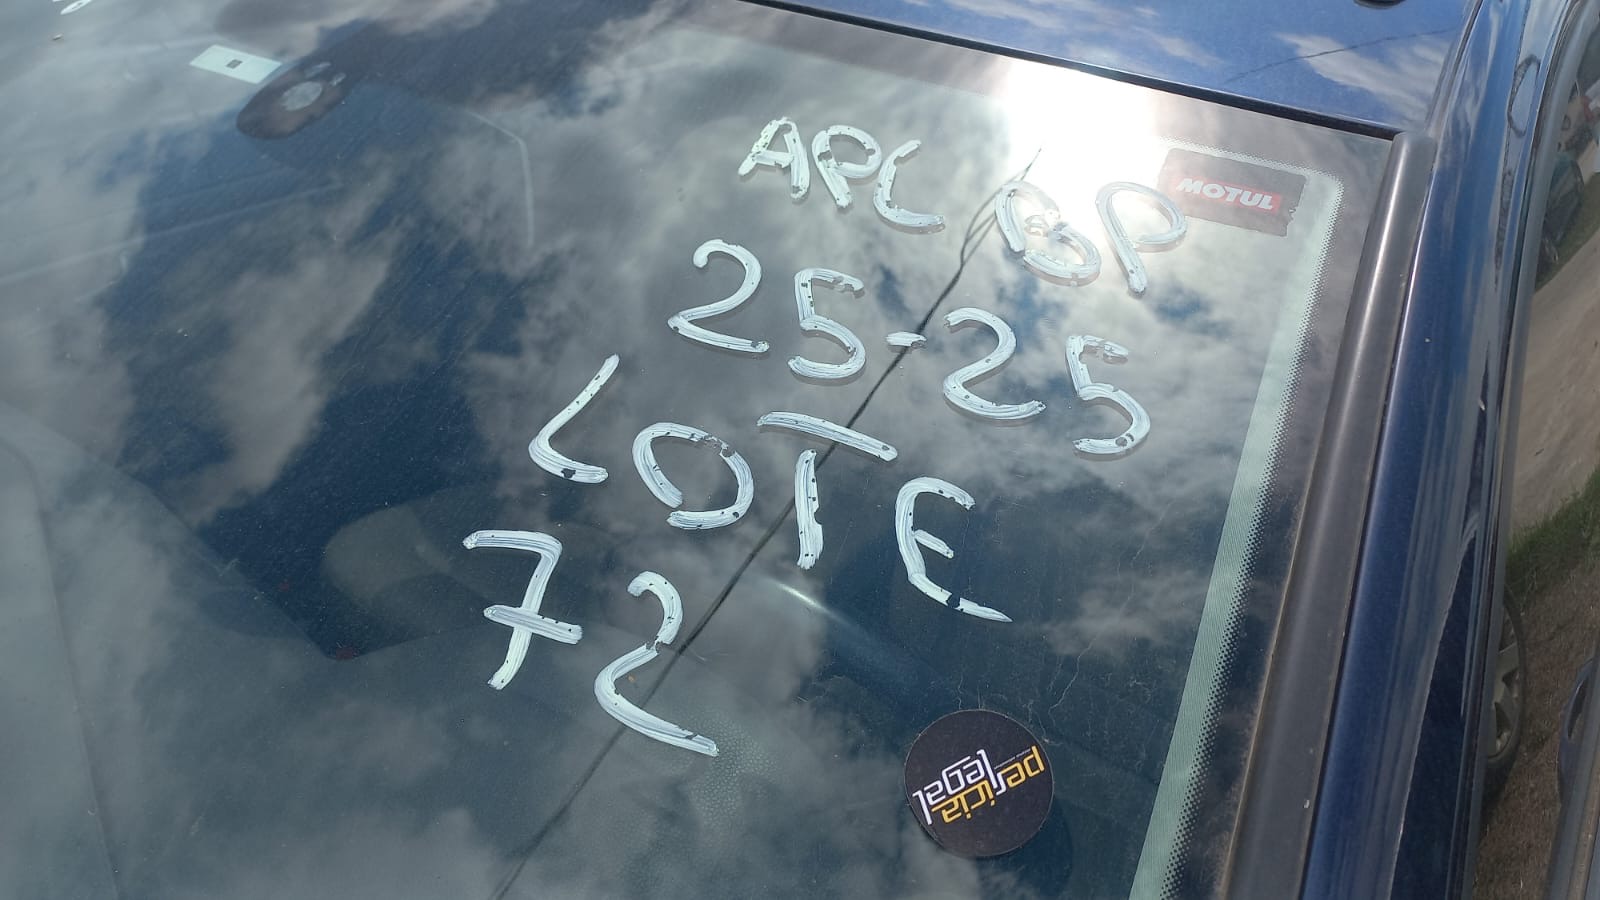 APC BP
25-25
LOTE
72
MOTUL
pericia
legal